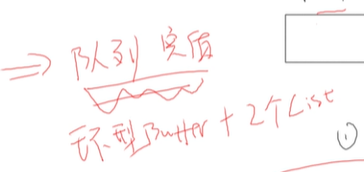 ⇒ 队列 实质
环型Buffer + 2个List
①